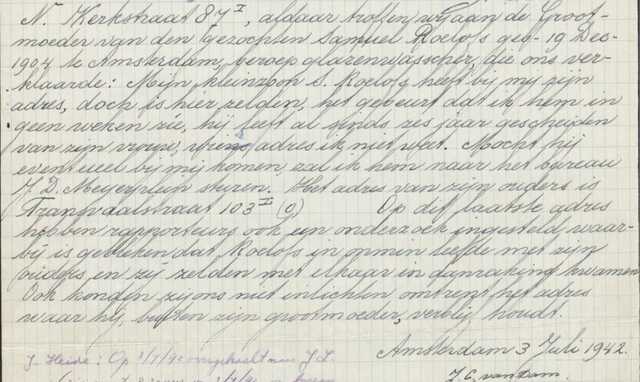 N. Kerkstraat 87 I, aldaar troffen wij aan de Groot-
moeder van den gezochten Samuel Roelofs geb- 19 Dec-
1904 te Amsterdam, beroep glazenwasscher, die ons ver-
klaarde: Mijn kleinzoon S. Roelofs heeft bij mij zijn
adres, doch is hier zelden, het gebeurt dat ik hem in
geen weken zie, hij leeft al sinds zes jaar gescheiden
van zijn vrouw, wiens adres ik niet weet. Mocht hij
eventueel bij mij komen, zal ik hem naar het bureau
J. D. Meyerplein sturen. Het adres van zijn ouders is
Transvaalstraat 103 II (O) Op dit laatste adres
hebben rapporteurs ook een onderzoek ingesteld, waar-
bij is gebleken dat Roelofs in onmin leefde met zijn
ouders en zij zelden met elkaar in aanraking kwamen
Ook konden zij ons niet inlichten omtrent het adres
waar hij, buiten zijn grootmoeder, verblijf houdt.
Amsterdam 3 Juli 1942.
J. C. van Dam.